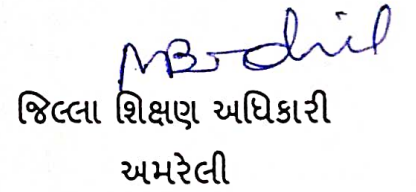 જિલ્લા શિક્ષણ અધિકારી
અમરેલી